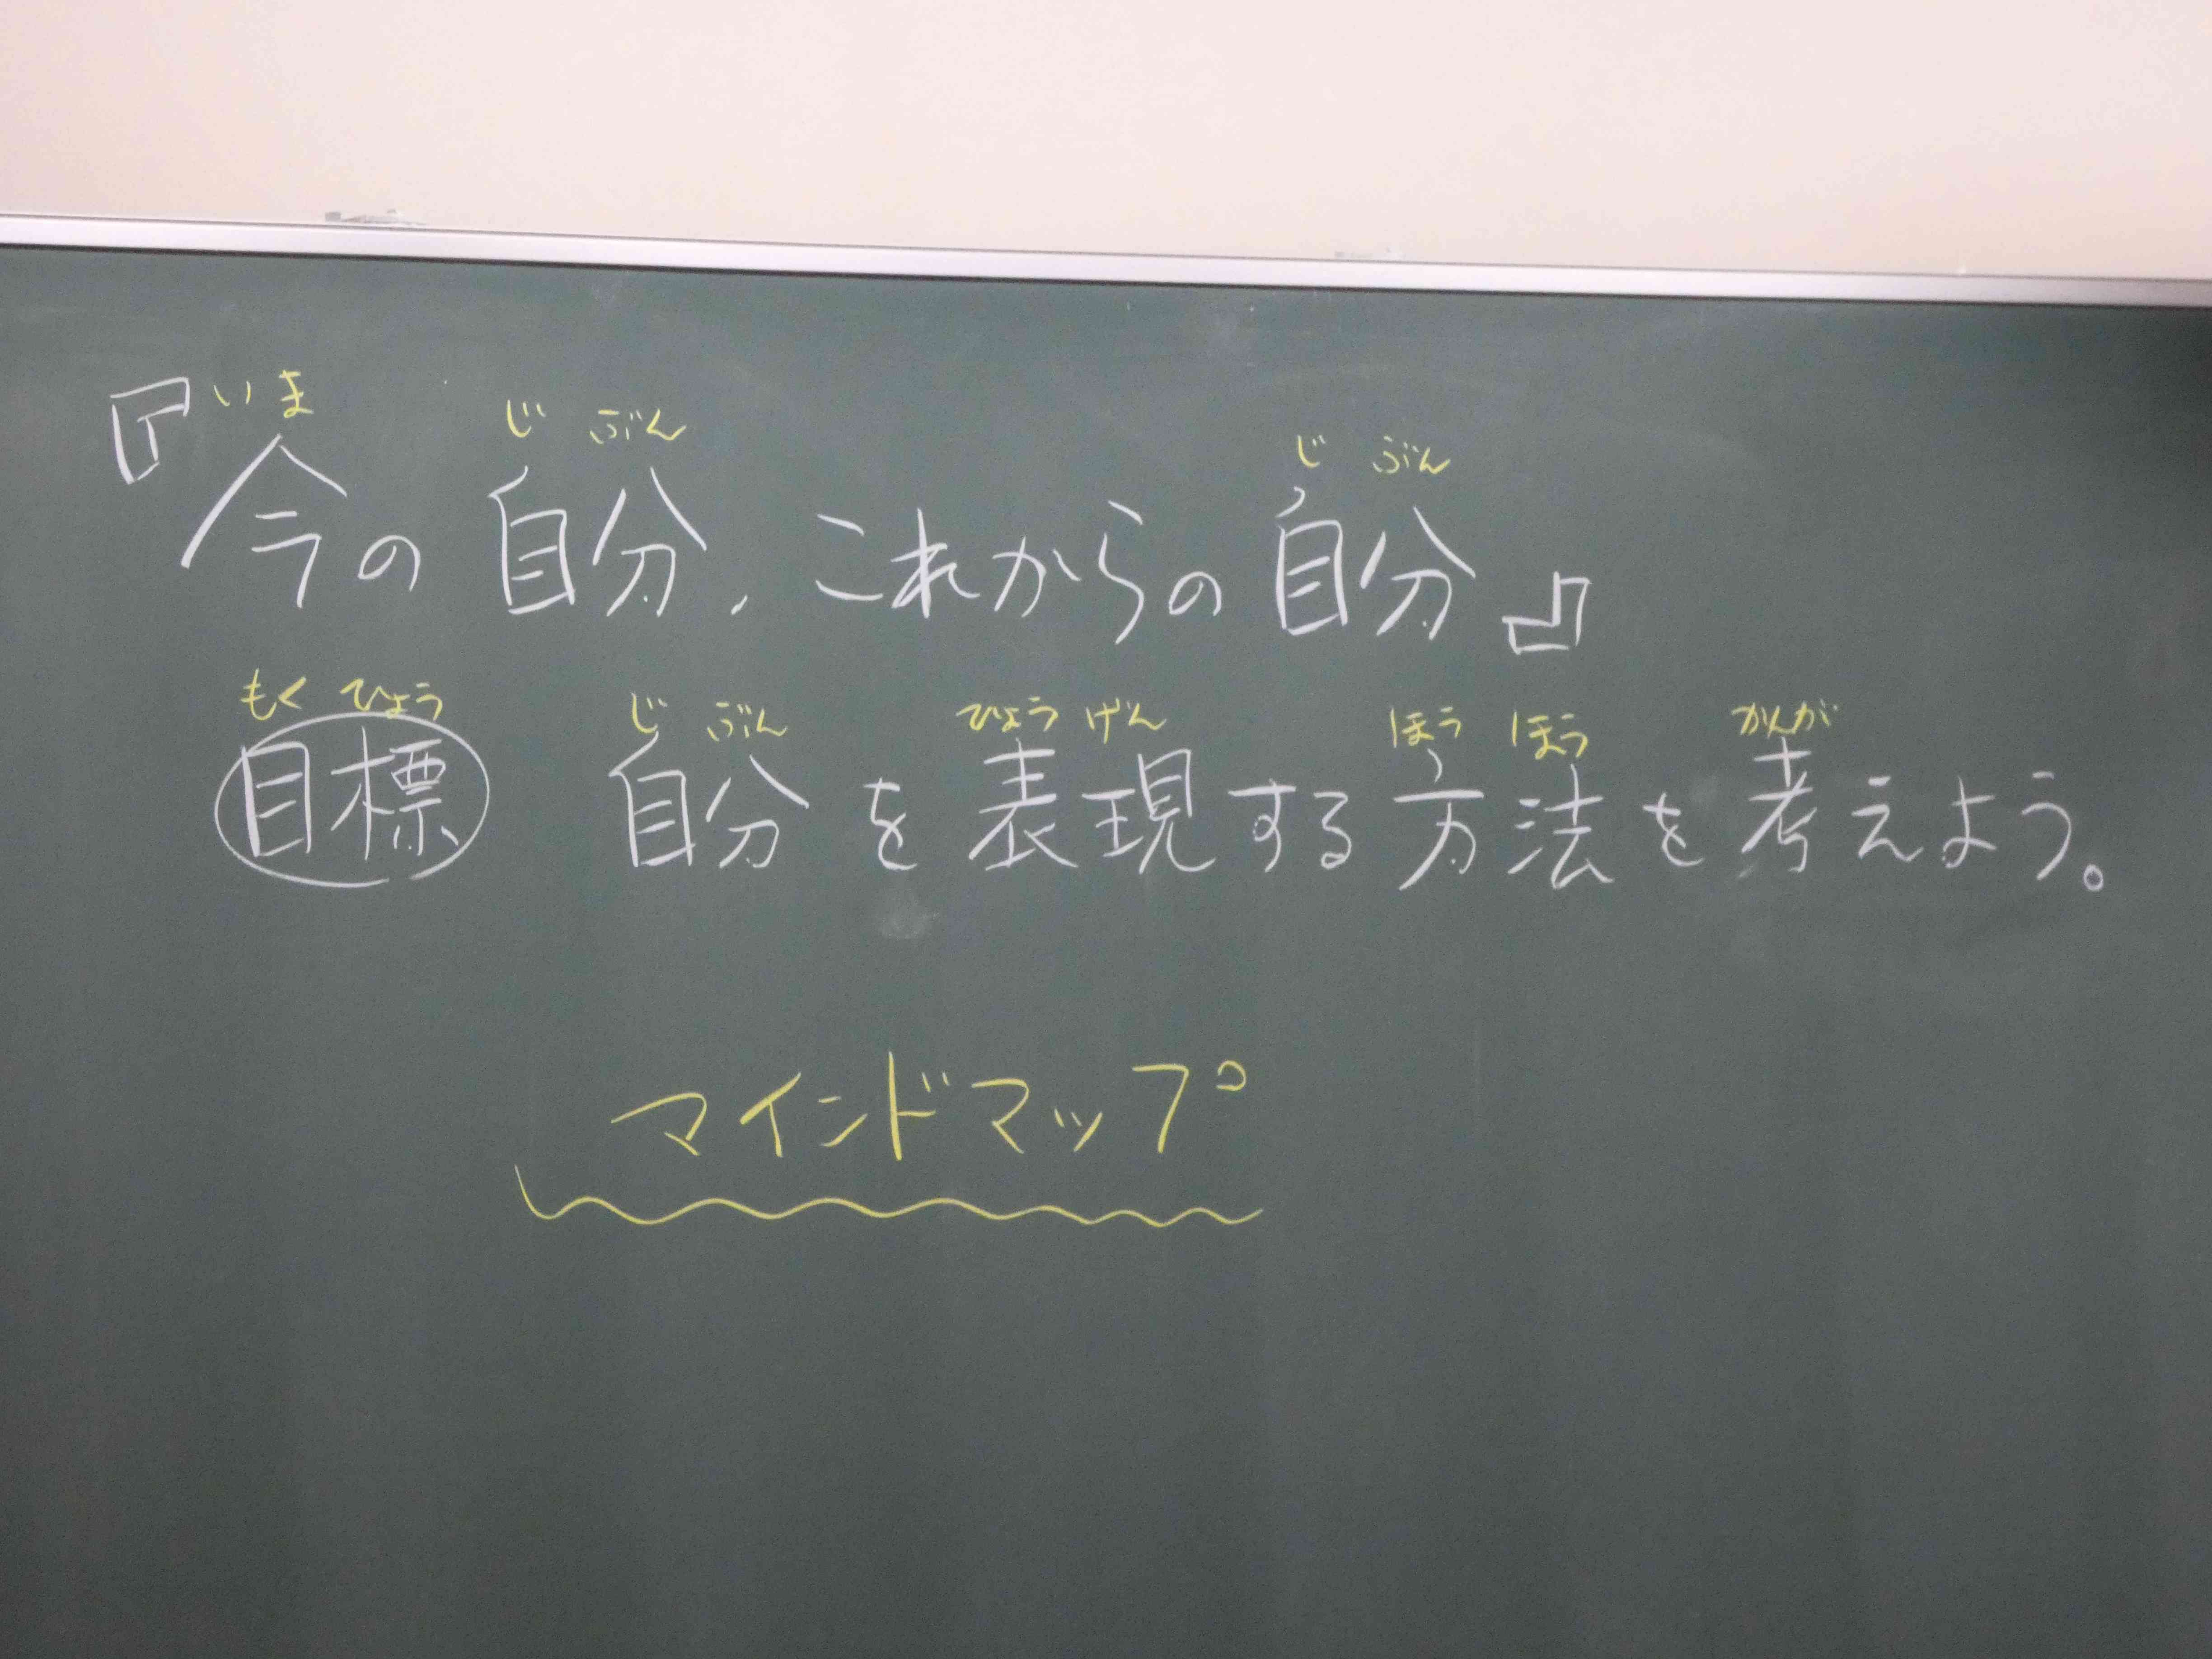 いま じ ぶん じ ぶん
『今の自分、これからの自分』
もく ひょう じ ぶん ひょう げん ほう ほう かんが
目標 自分を表現する方法を考えよう。
マインドマップ